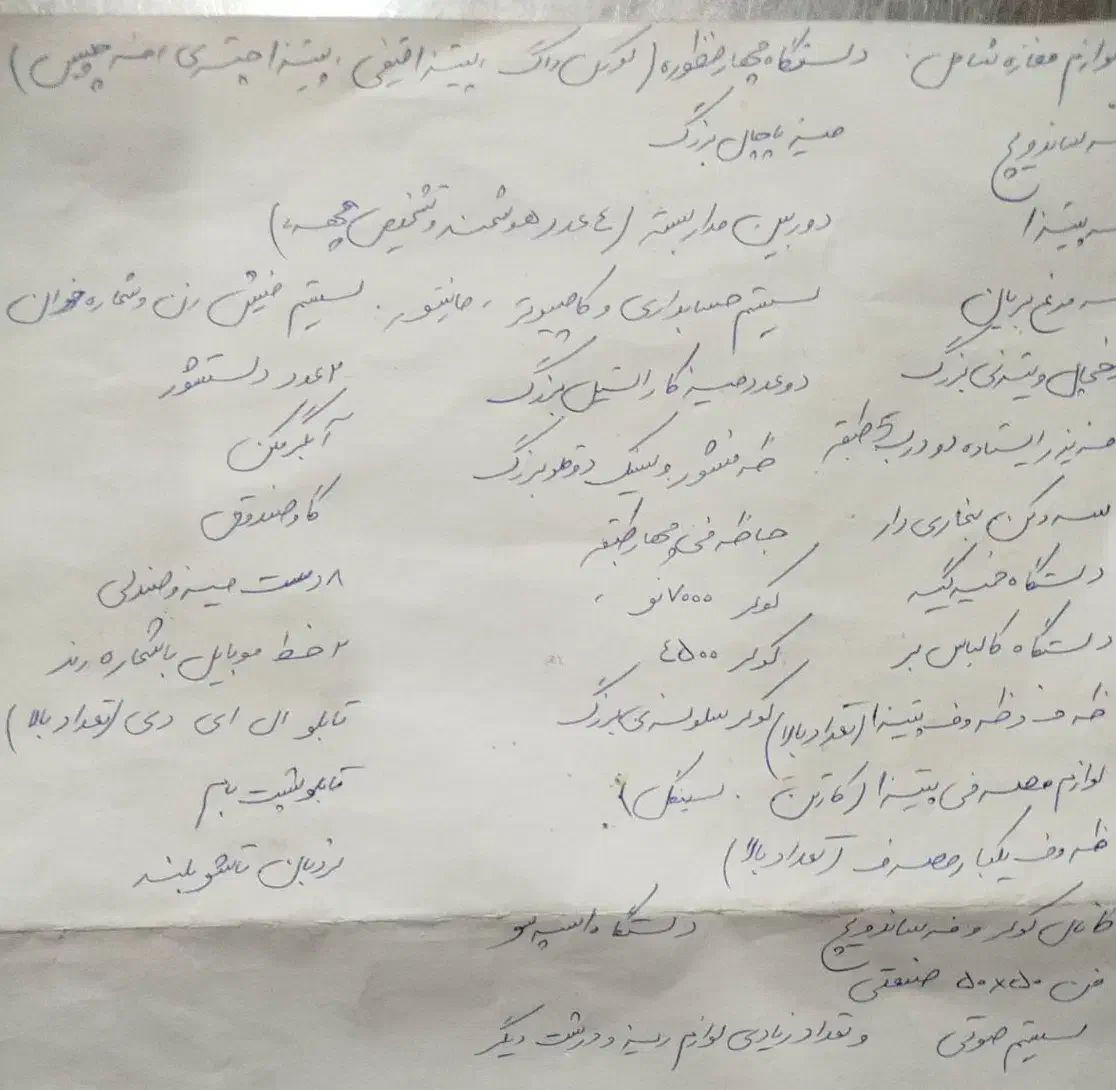 لوازم مغازه شامل: دستگاه چهار منظوره (کورن داگ، پیتزا قیفی، پیتزا چتری، اسنه چیپس)
فر ساندویچ میز یاچال بزرگ
فر پیتزا دوربین مداربسته (٤ عدد هوشمند و تشخیص چهره)
فر مرغ بریان سیستم حسابداری و کامپیوتر، مانیتور. سیستم فیش زن و شماره خوان
یخچال ویترنی بزرگ دو عدد میز کار استیل بزرگ ۲ عدد دستشور
فریزر ایستاده دو درب ۵ طبقه ظرفشور و سینک دوقلو بزرگ آبگرمکن
سرخ کن بخاری دار جا ظرفی چهار طبقه گاوصندوق
دستگاه خمیر گیر کولر ۷۰۰۰ نو، ۸ دست میز و صندلی
دستگاه کالباس بر کولر ٤۵۰۰ ۲ خط موبایل با شماره رند
ظرف و ظروف پیتزا (تعداد بالا) کولر سلولزی بزرگ تابلو ال ای دی (تعداد بالا)
لوازم مصرفی پیتزا (کارتن. سینگل) تابلو پشت بام
ظروف یکبار مصرف (تعداد بالا) نردبان تاشو بلند
کانال کولر و فر ساندویچ دستگاه اسپرسو
فن ۵۰×۵۰ صنعتی
سیستم صوتی و تعداد زیادی لوازم ریز و درشت دیگر